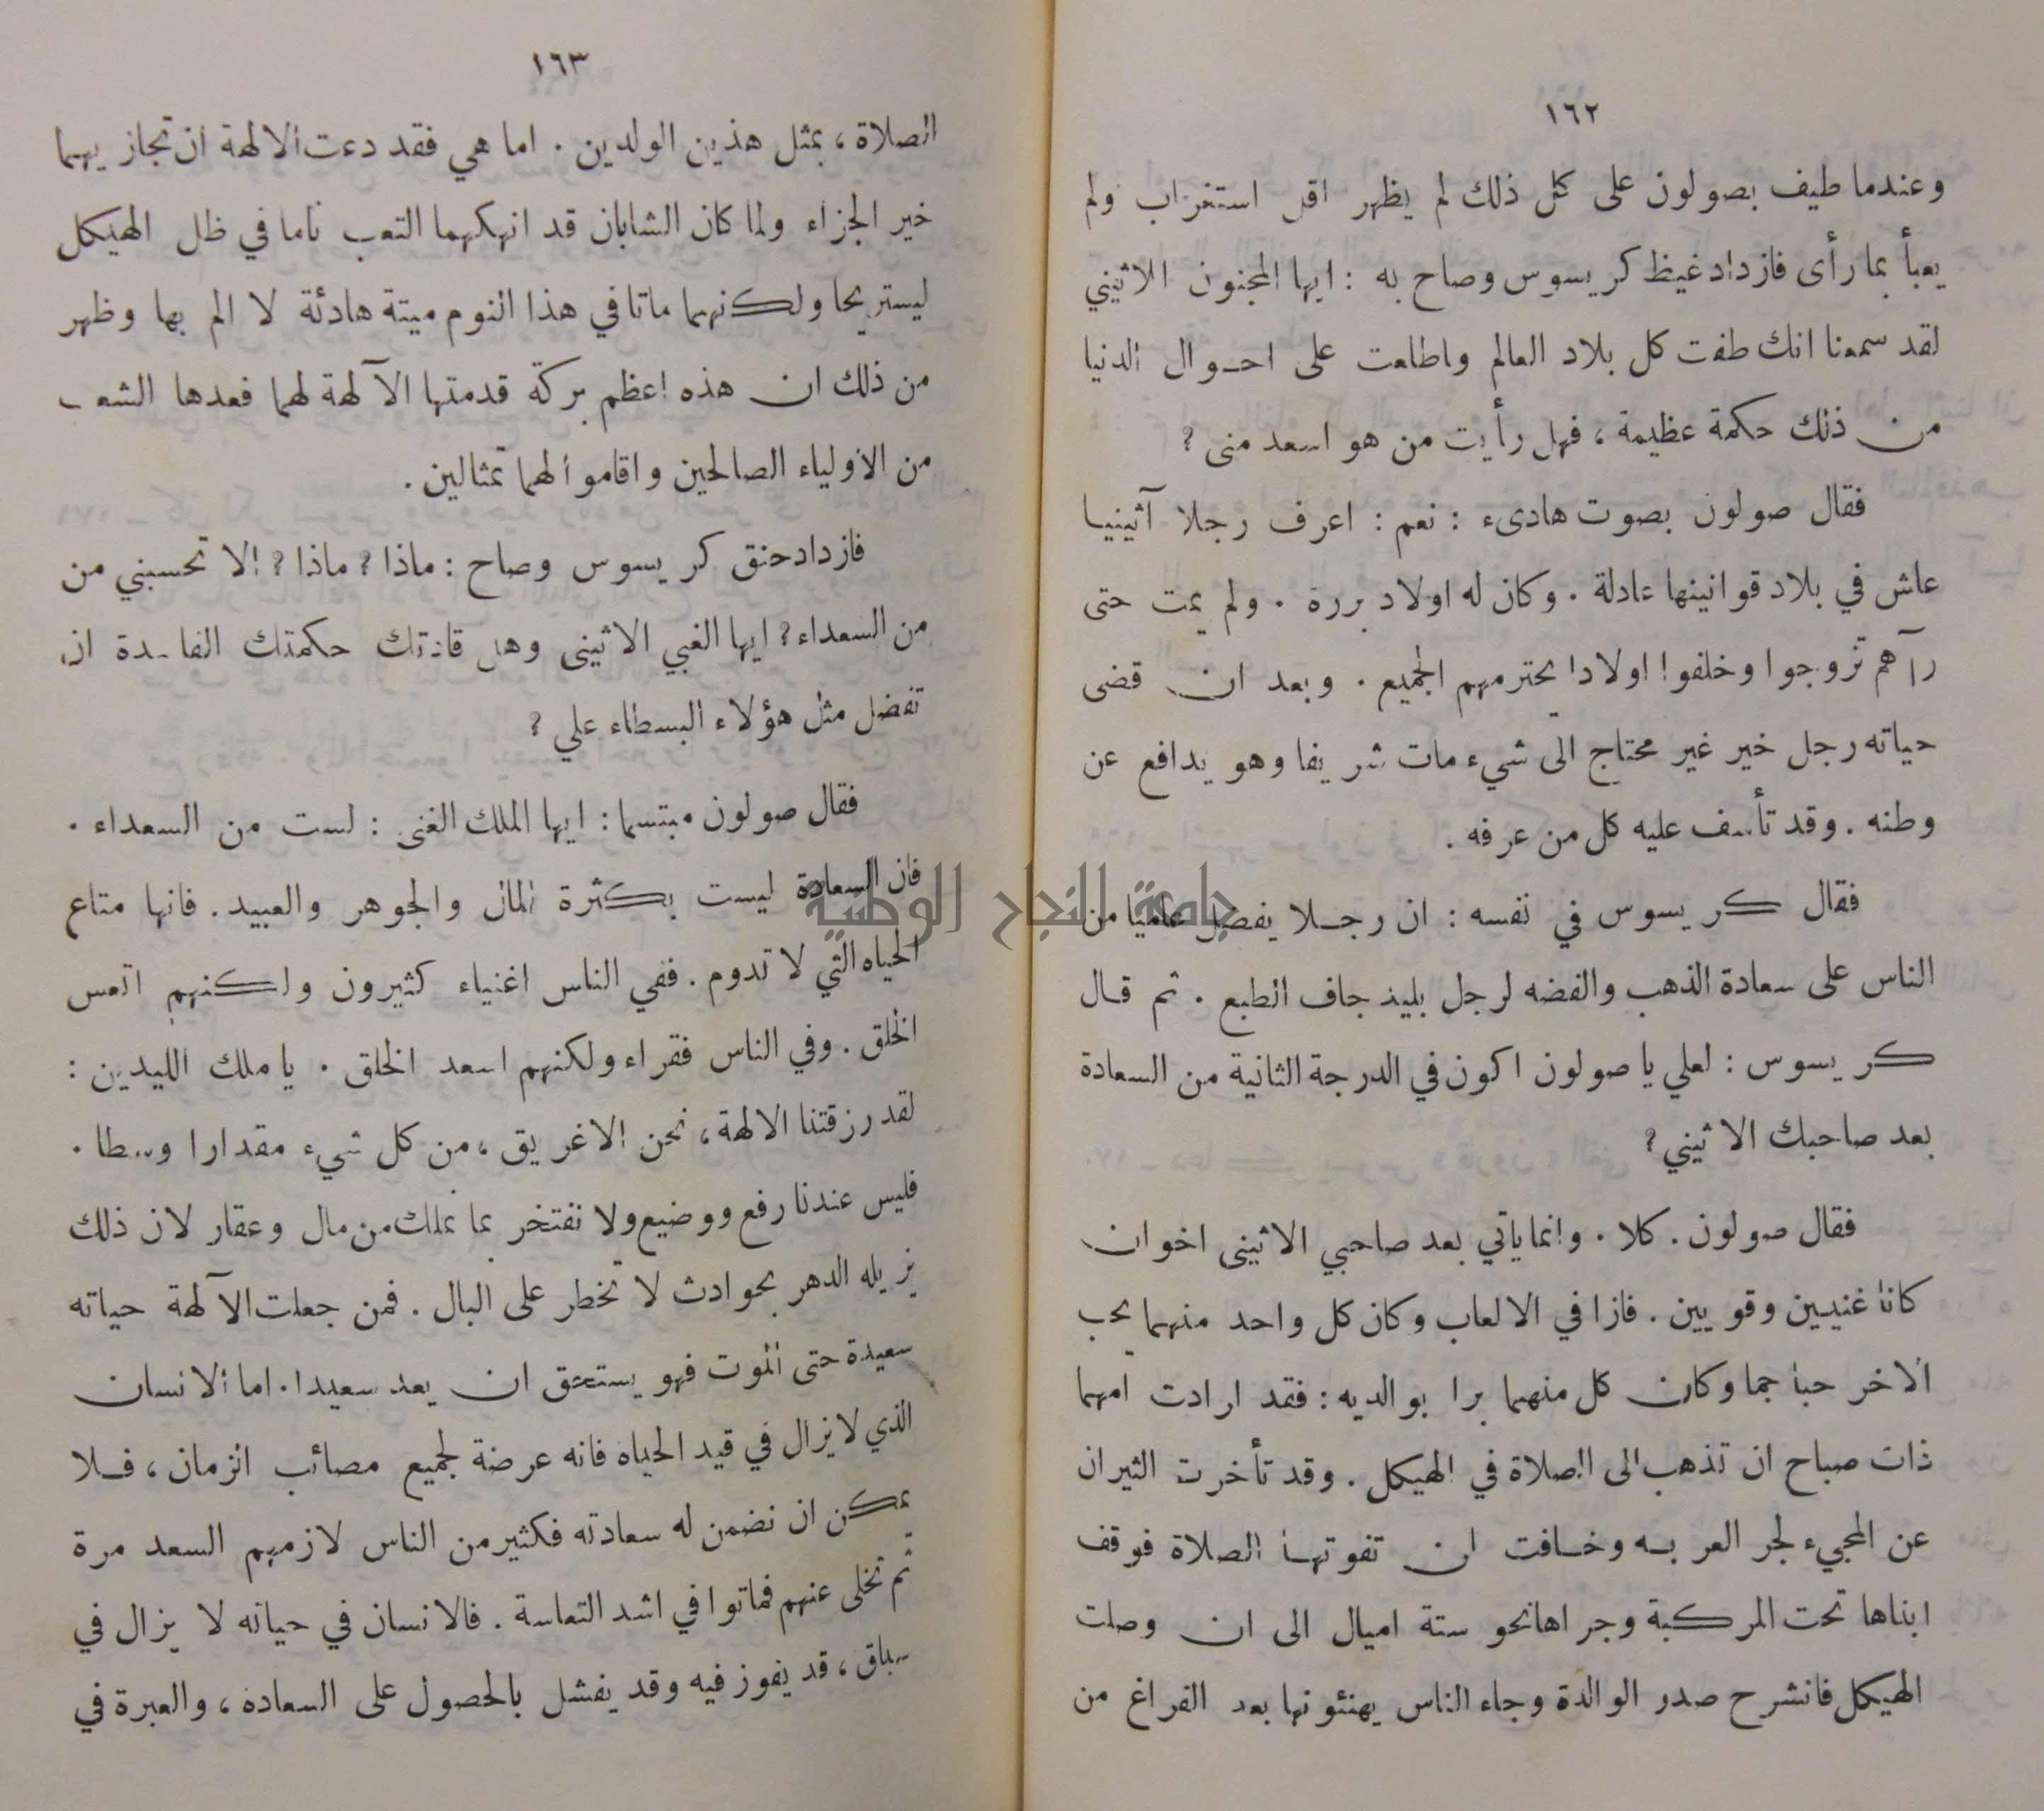 ١٦٢
وعندما طيف بصولون على كل ذلك لم يظهر اقل استغراب ولم
يعبأ بما رأى فازداد غيظ كريسوس وصاح به : ايها المجنون الاثيني
لقد سمعنا انك طفت كل بلاد العالم واطلعت على احوال الدنيا
من ذلك حكمة عظيمة ، فهل رأيت من هو اسعد منى ؟
فقال صولون بصوت هادىء : نعم : اعرف رجلا آثينيا
عاش في بلاد قوانينها عادلة . وكان له اولاد بررة . ولم يمت حتى
رآهم تزوجوا وخلفوا اولادا يحترمهم الجميع . وبعد ان قضى
حياته رجل خير غير محتاج الى شيء مات شريفا وهو يدافع عن
وطنه . وقد تأسف عليه كل من عرفه .
فقال كريسوس في نفسه : ان رجلا يفضل عاميا من
الناس على سعادة الذهب والفضه لرجل بليد جاف الطبع . ثم قال
كريسوس : لعلي يا صولون اكون في الدرجة الثانية من السعادة
بعد صاحبك الاثيني ؟
فقال صولون . كلا . وانما ياتي بعد صاحبي الاثينى اخوان
كانا غنيين وقويين . فازا في الالعاب وكان كل واحد منهما يحب
الاخر حبا جما وكان كل منهما برا بوالديه : فقد ارادت امهما
ذات صباح ان تذهب الى الصلاة في الهيكل . وقد تأخرت الثيران
عن المجيء لجر العربه وخافت ان تفوتها الصلاة فوقف
ابناها تحت المركبة وجراها نحو ستة اميال الى ان وصلت
الهيكل فانشرح صدر الوالدة وجاء الناس يهنئونها بعد الفراغ من
١٦٣
الصلاة ، بمثل هذين الولدين . اما هي فقد دعت الالهة ان تجازيهما
خير الجزاء ولما كان الشابان قد انهكهما التعب ناما في ظل الهيكل
ليستريحا ولكنهما ماتا في هذا النوم ميتة هادئة لا الم بها وظهر
من ذلك ان هذه اعظم بركة قدمتها الآلهة لهما فعدها الشعب
من الاولياء الصالحين واقاموا لهما تمثالين .
فازداد حنق كريسوس وصاح : ماذا ؟ ماذا ؟ الا تحسبني من
من السعداء ؟ ايها الغبي الاثينى وهل قادتك حكمتك الفاسدة ان
تفضل مثل هؤلاء البسطاء علي ؟
فقال صولون مبتسما : ايها الملك الغنى : لست من السعداء .
فان السعادة ليست بكثرة المال والجوهر والعبيد . فانها متاع
الحياه التي لا تدوم . ففي الناس اغنياء كثيرون ولكنهم اتعس
الخلق . وفي الناس فقراء ولكنهم اسعد الخلق . يا ملك الليدين :
لقد رزقتنا الالهة ، نحن الاغريق ، من كل شيء مقدارا وسطا .
فليس عندنا رفع ووضيع ولا نفتخر بما نملك من مال وعقار لان ذلك
يزيله الدهر بحوادث لا تخطر على البال . فمن جعلت الآلهة حياته
سعيدة حتى الموت فهو يستحق ان يعد سعيدا . اما الانسان
الذي لا يزال في قيد الحياه فانه عرضة لجميع مصائب الزمان ، فلا
يمكن ان نضمن له سعادته فكثير من الناس لازمهم السعد مرة
ثم تخلى عنهم فماتوا في اشد التعاسة . فالانسان في حياته لا يزال في
سباق ، قد يفوز فيه وقد يفشل بالحصول على السعاده ، والعبرة في
جامعة النجاح الوطنية